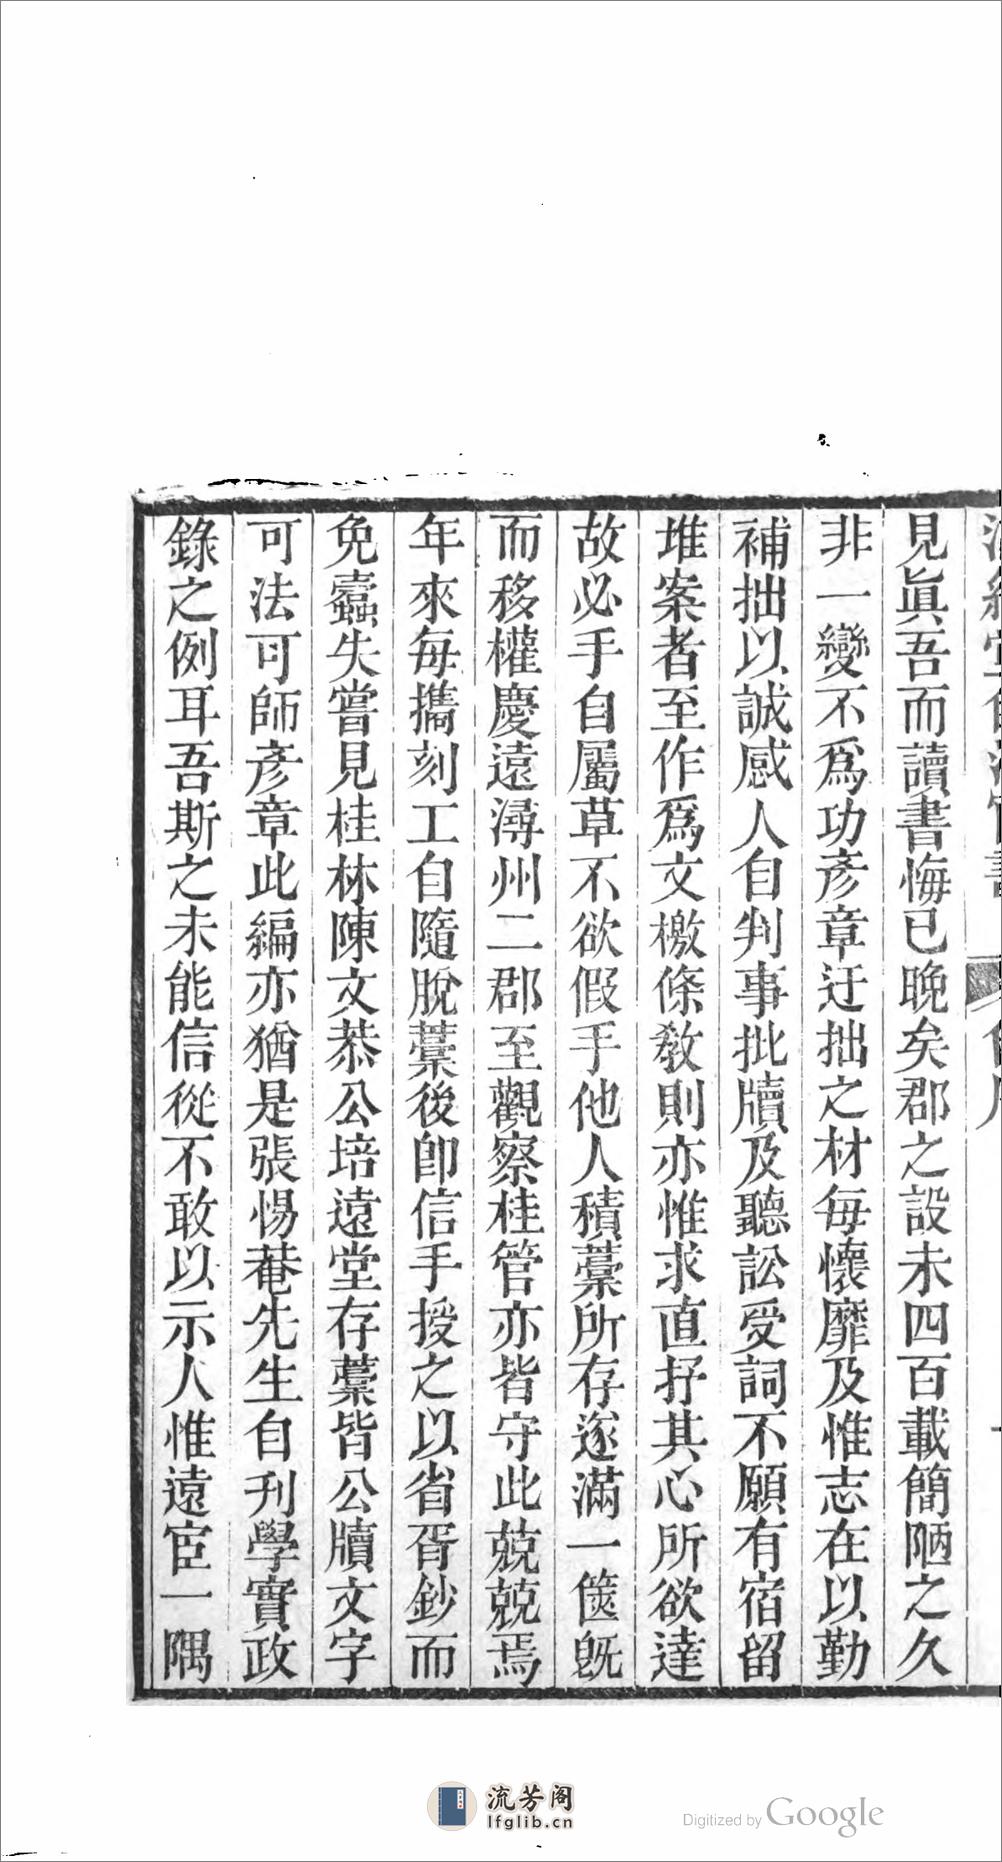 見眞吾而讀書悔已晚矣郡之設未四百載簡陋之久
非一變不爲功彥章迂拙之材每懷靡及惟志在以勤
補拙以誠感人自判事批牘及聽訟受詞不願有宿留
堆案者至作爲文檄條敎則亦惟求直抒其心所欲達
故必手自屬草不欲假手他人積藁所存遂滿一篋旣
而移權慶遠潯州二郡至觀察桂管亦皆守此兢兢焉
年來每攜刻工自隨脫藁後卽信手授之以省胥鈔而
免蠹失嘗見桂林陳文恭公培遠堂存藁皆公牘文字
可法可師彥章此編亦猶是張惕菴先生自刊學實政
錄之例耳吾斯之未能信從不敢以示人惟遠宦一隅
流芳阁
lfglib.cn
Digitized by Google